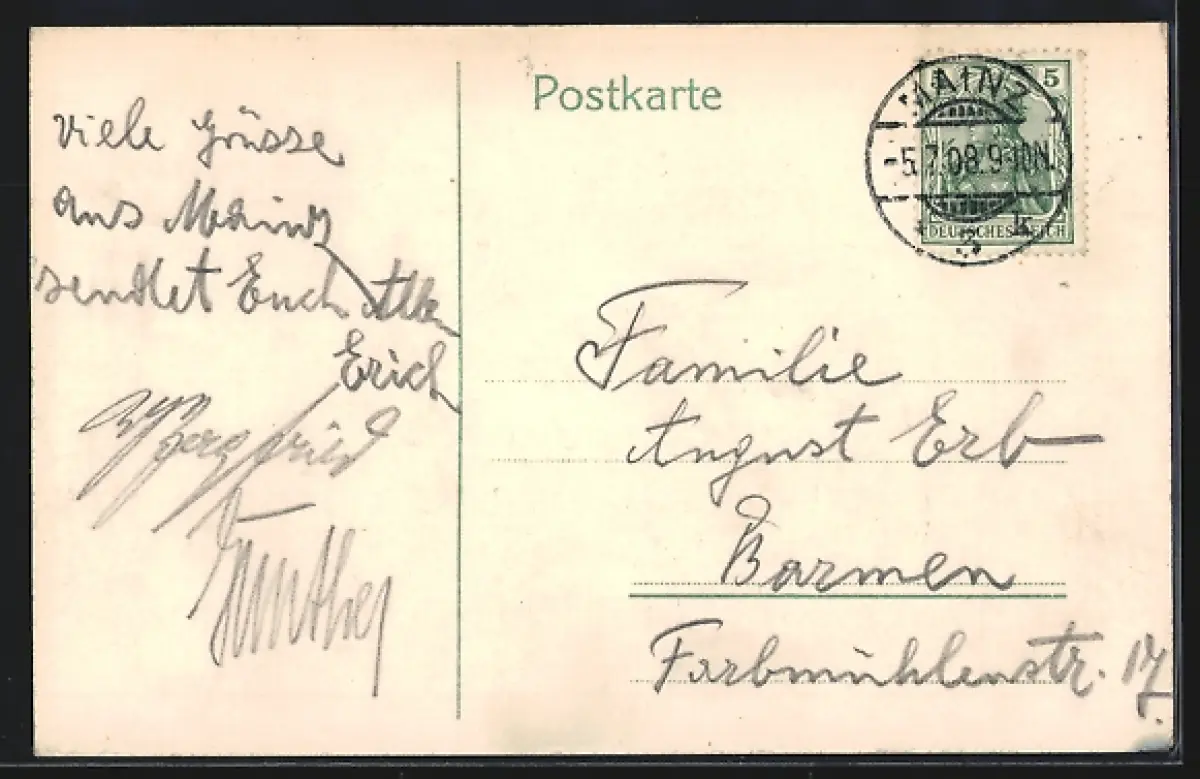 Postkarte
5 5
MAINZ
-5.7.08.9-10N.
* 3 k
DEUTSCHES REICH
viele Grüsse
aus Mainz
sendet Euch allen
Erich
Günther
Familie
August Erb
Barmen
Farbmühlenstr. 17.